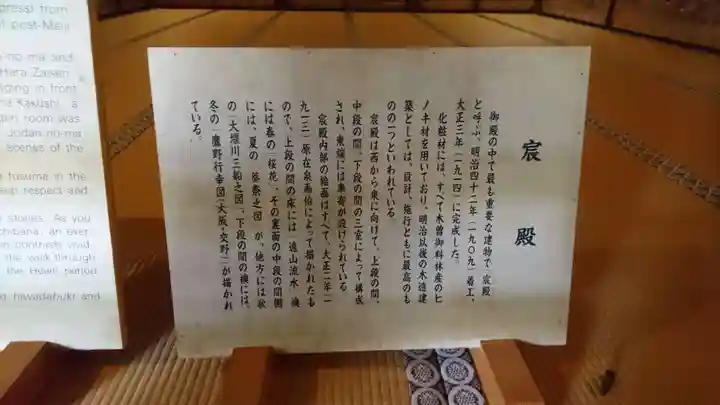 press) from
post-Meiji
no-ma and
Hara Zaisen
nging in front
Kakushi, a
room was
Jodan no-ma
scenes of the
fusuma in the
respect and
stories. As you
an ever
contrasts vivid
the walk through
the Heian period
hiwadabuki and
宸殿
御殿の中で最も重要な建物で、宸殿
と呼ぶ。明治四十二年(一九〇九)着工、
大正三年(一九一四)に完成した。
化粧材には、すべて木曽御料林産のヒ
ノキ材を用いており、明治以後の木造建
築としては、設計、施行ともに最高のも
のの一つといわれている。
宸殿は西から東に向けて、上段の間、
中段の間、下段の間の三室によって構成
され、東端には車寄が設けられている
宸殿内部の絵画はすべて、大正二年(一
九一三)原在泉画伯によって描かれたも
ので、上段の間の床には「遠山流水」襖
には春の「桜花」、その裏面の中段の間側
には、夏の「葵祭之図」が、他方には秋
の「大堰川三船之図」、下段の間の襖には、
冬の「鷹野行幸図(大阪・交野)」が描かれ
ている。